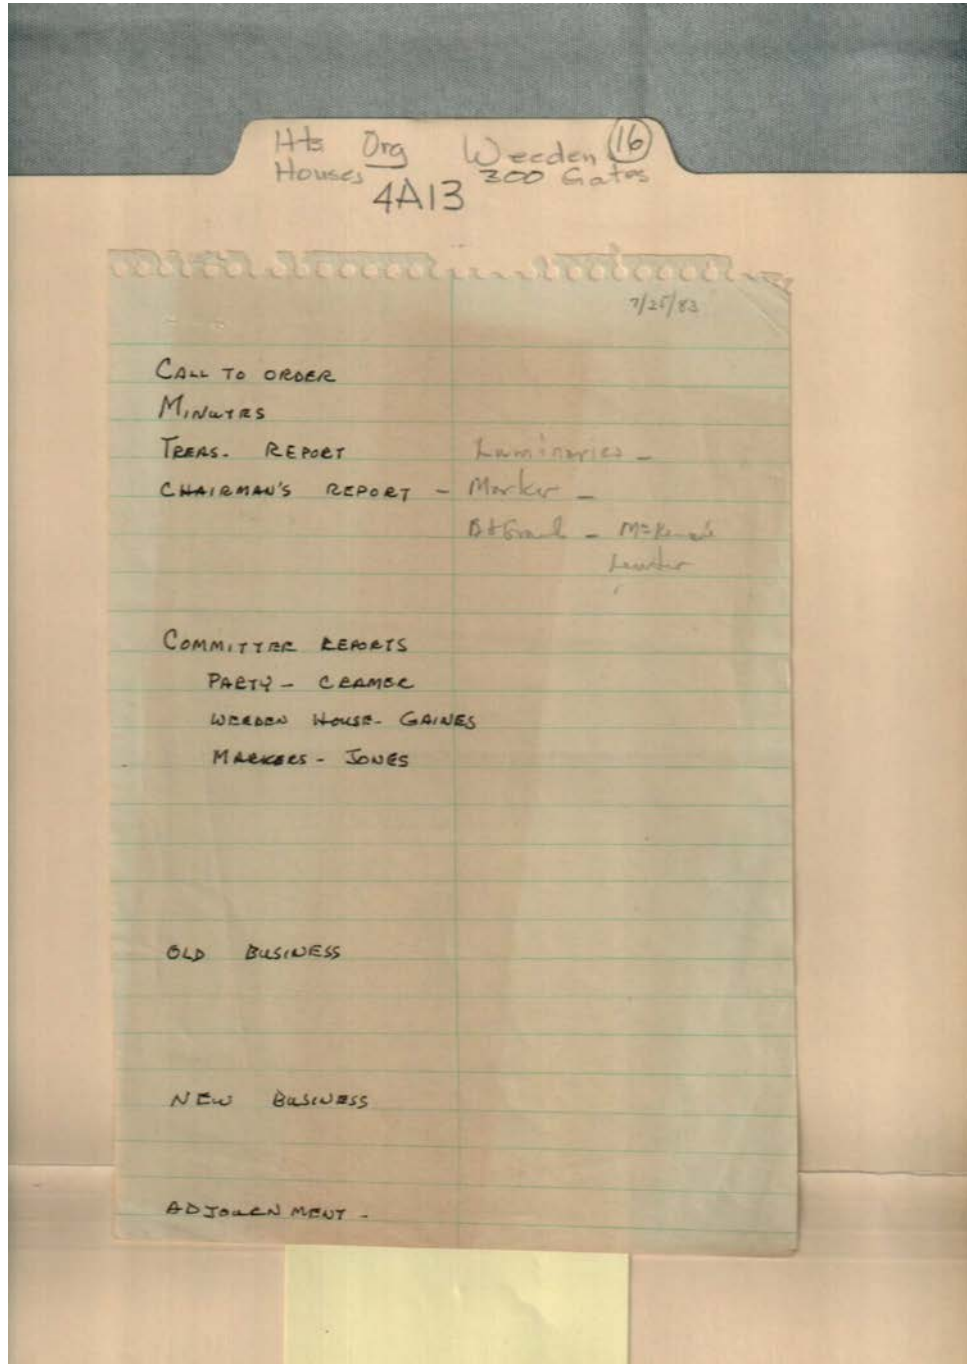 Hts Org Weeden 16
Houses 300 Gates
4A13
7/25/83
CALL TO ORDER
MINUTES
TREAS. REPORT Luminaries -
CHAIRMAN'S REPORT - Marker -
COMMITTEE REPORTS
PARTY - CRAMER
WEEDEN HOUSE - GAINES
MARKERS - JONES
OLD BUSINESS
NEW BUSINESS
ADJOURNMENT -